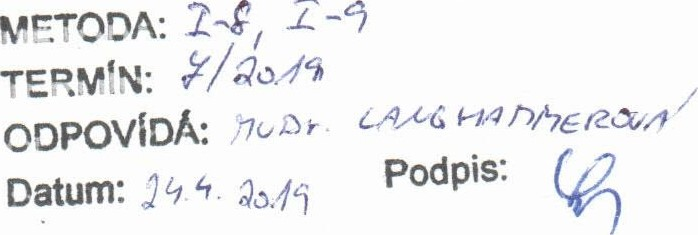 METODA: I-8, I-9
TERMÍN: 7/2019
ODPOVÍDÁ: MUDr. LANGHAMMEROVÁ
Datum: 24.4. 2019 Podpis: